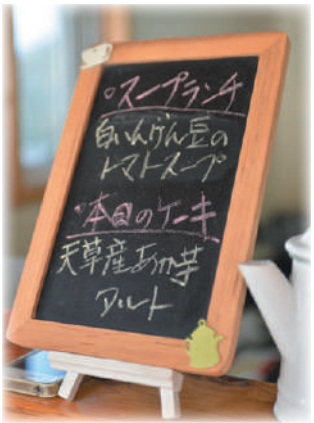 ○スープランチ
白いんげん豆の
トマトスープ
・本日のケーキ
天草産あか芋
タルト